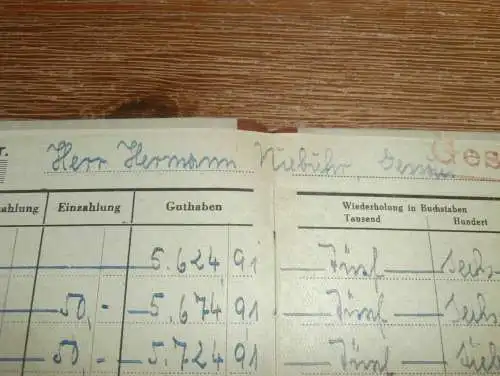 r. Herr Hermann Niebuhr Ges
ahlung Einzahlung Guthaben Wiederholung in Buchstaben
Tausend Hundert
5.624 91 Fünf Sechs
50,- 5.674 91 Fünf Sechs
50 - 5.724 91 Fünf Sieb